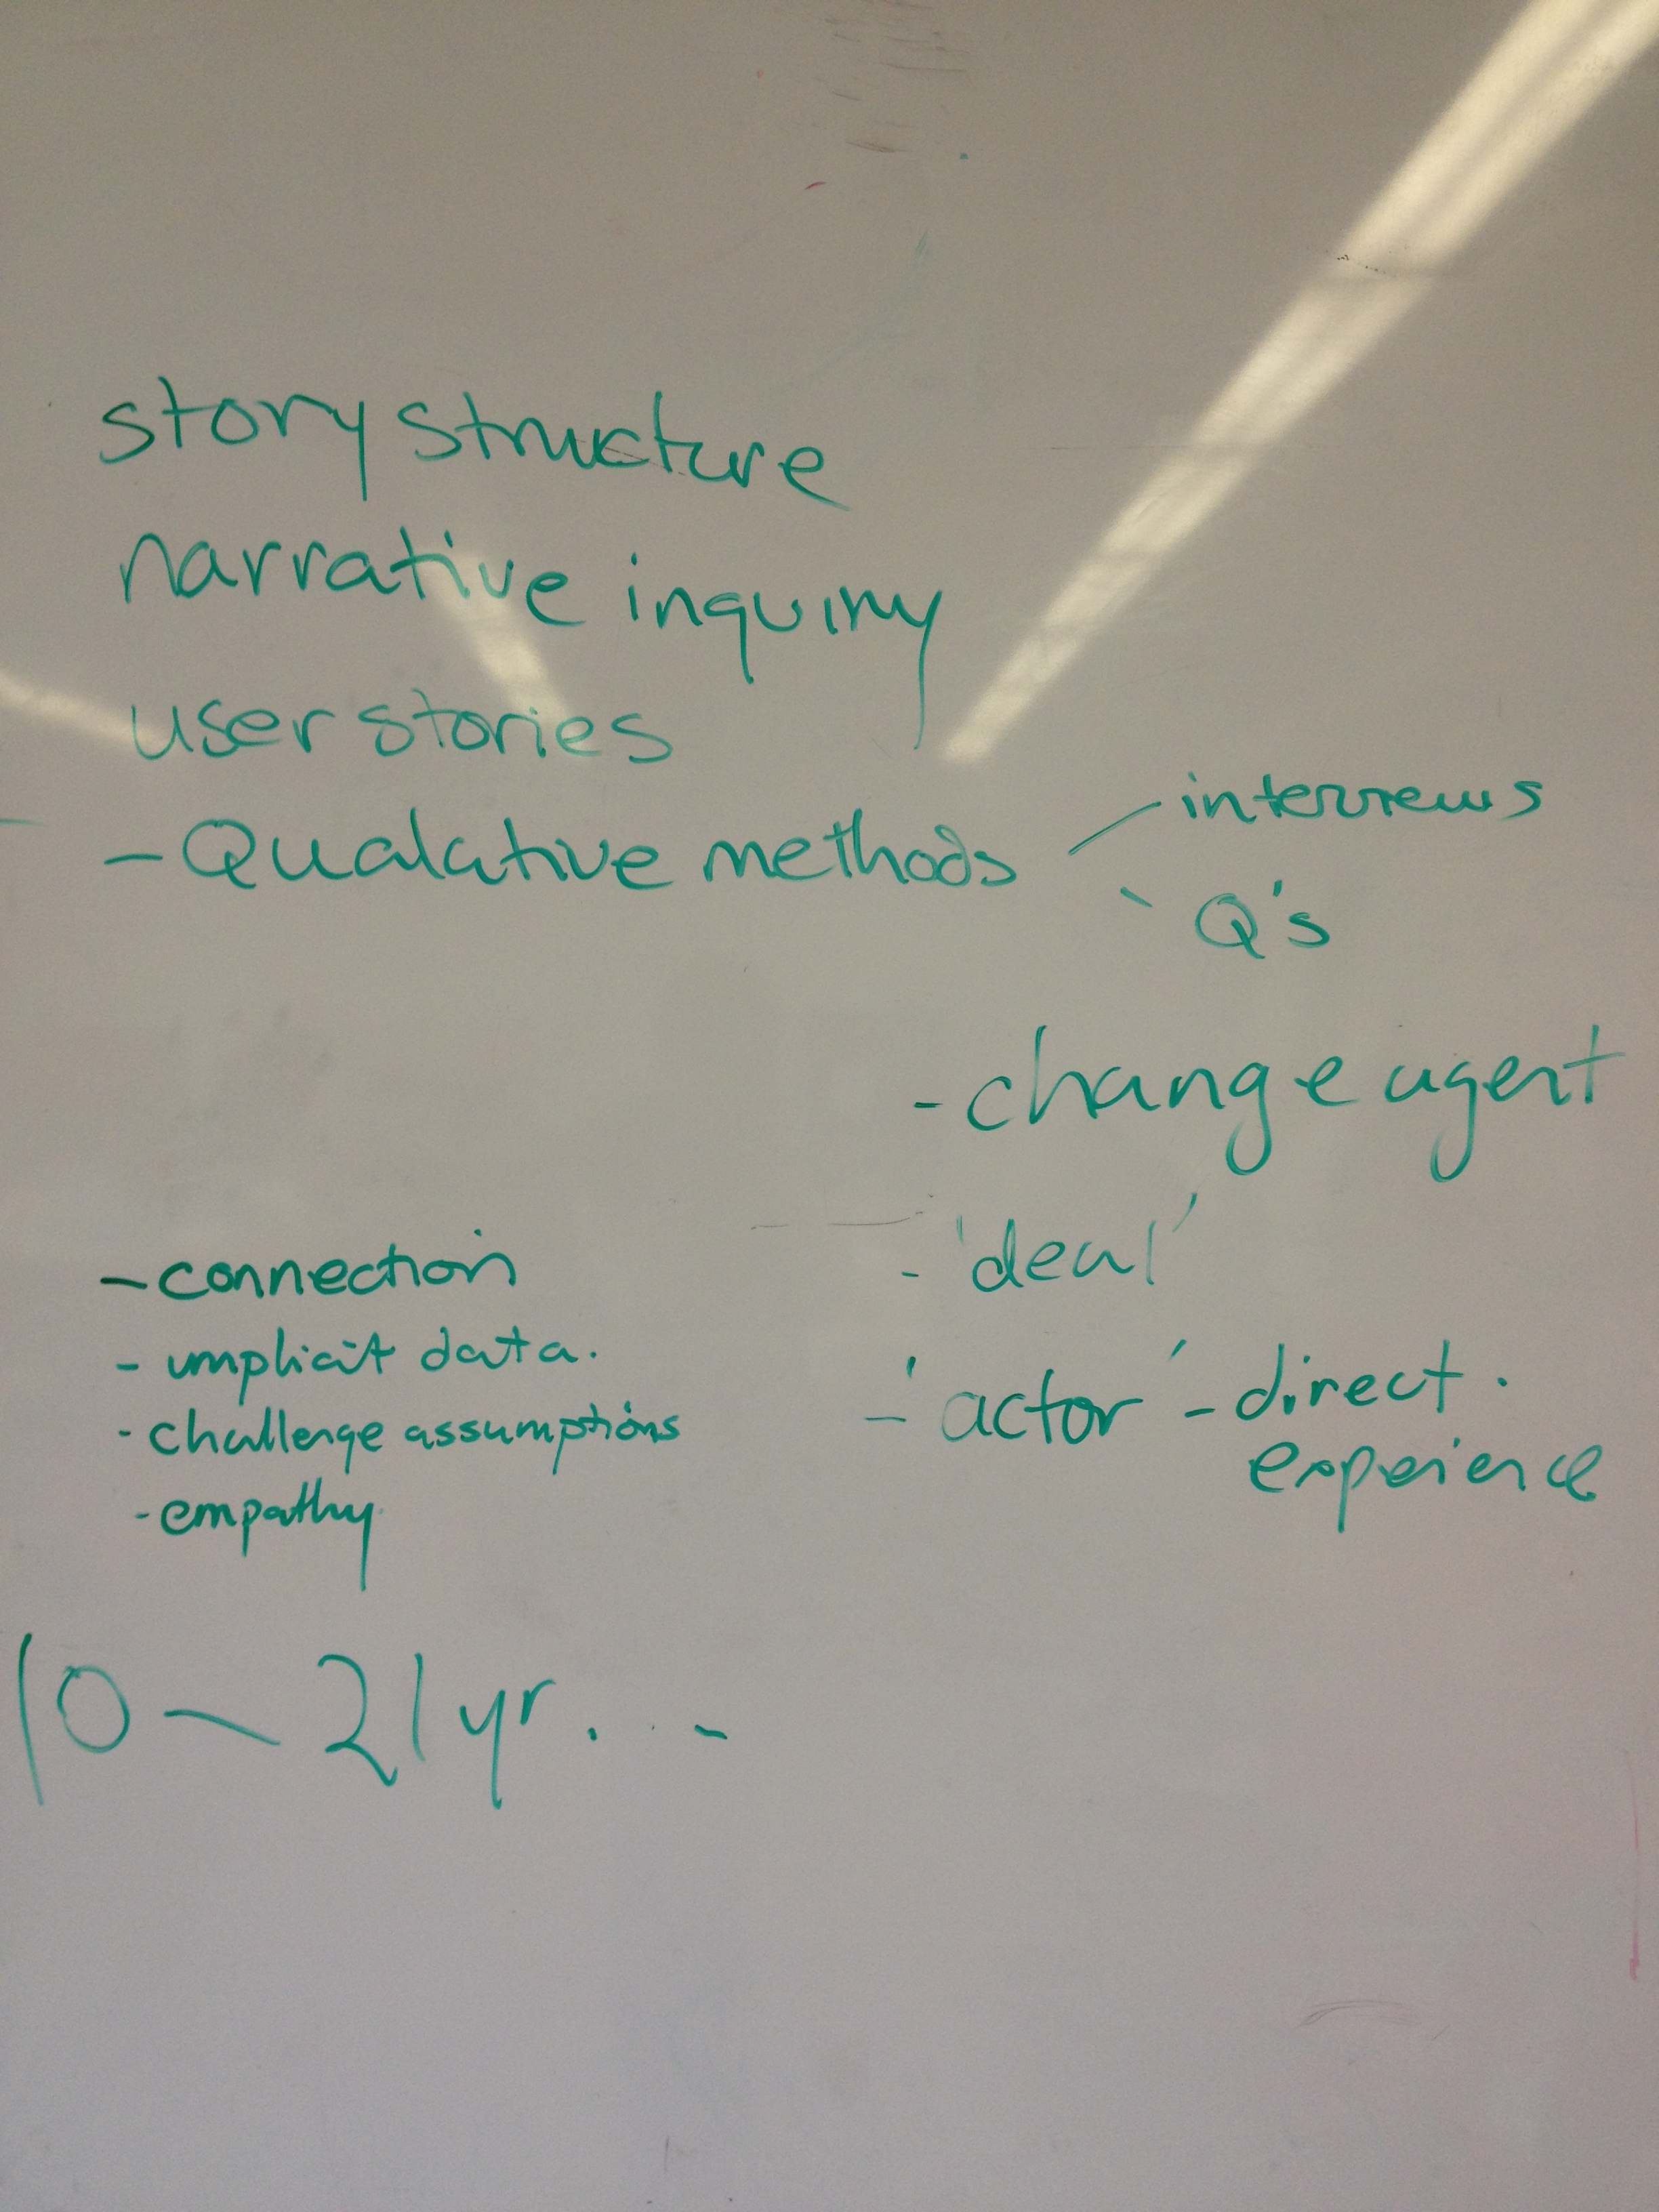 story structure
narrative inquiry
user stories
- Qualative methods
interviews
Q's
- change agent
- 'deal'
- 'actor' - direct.
experience
- connection
- implicit data.
- challenge assumptions
- empathy
10 - 21 yr. . -